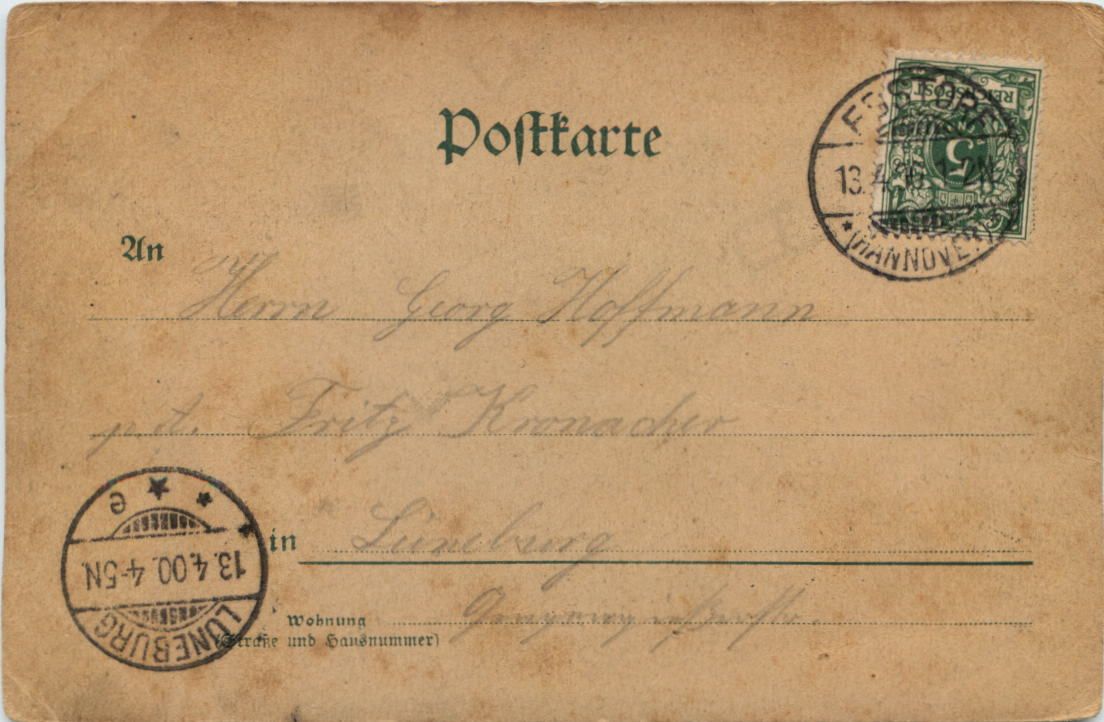 Postkarte
REICHSPOST
5
EBSTORF
13.4. 1-2N
*(HANNOVER)
An
Herrn Georg Hoffmann
Fritz Kronacher
in Lüneburg
e
13.4.00. 4-5N.
LÜNEBURG
Wohnung
(Straße und Hausnummer)